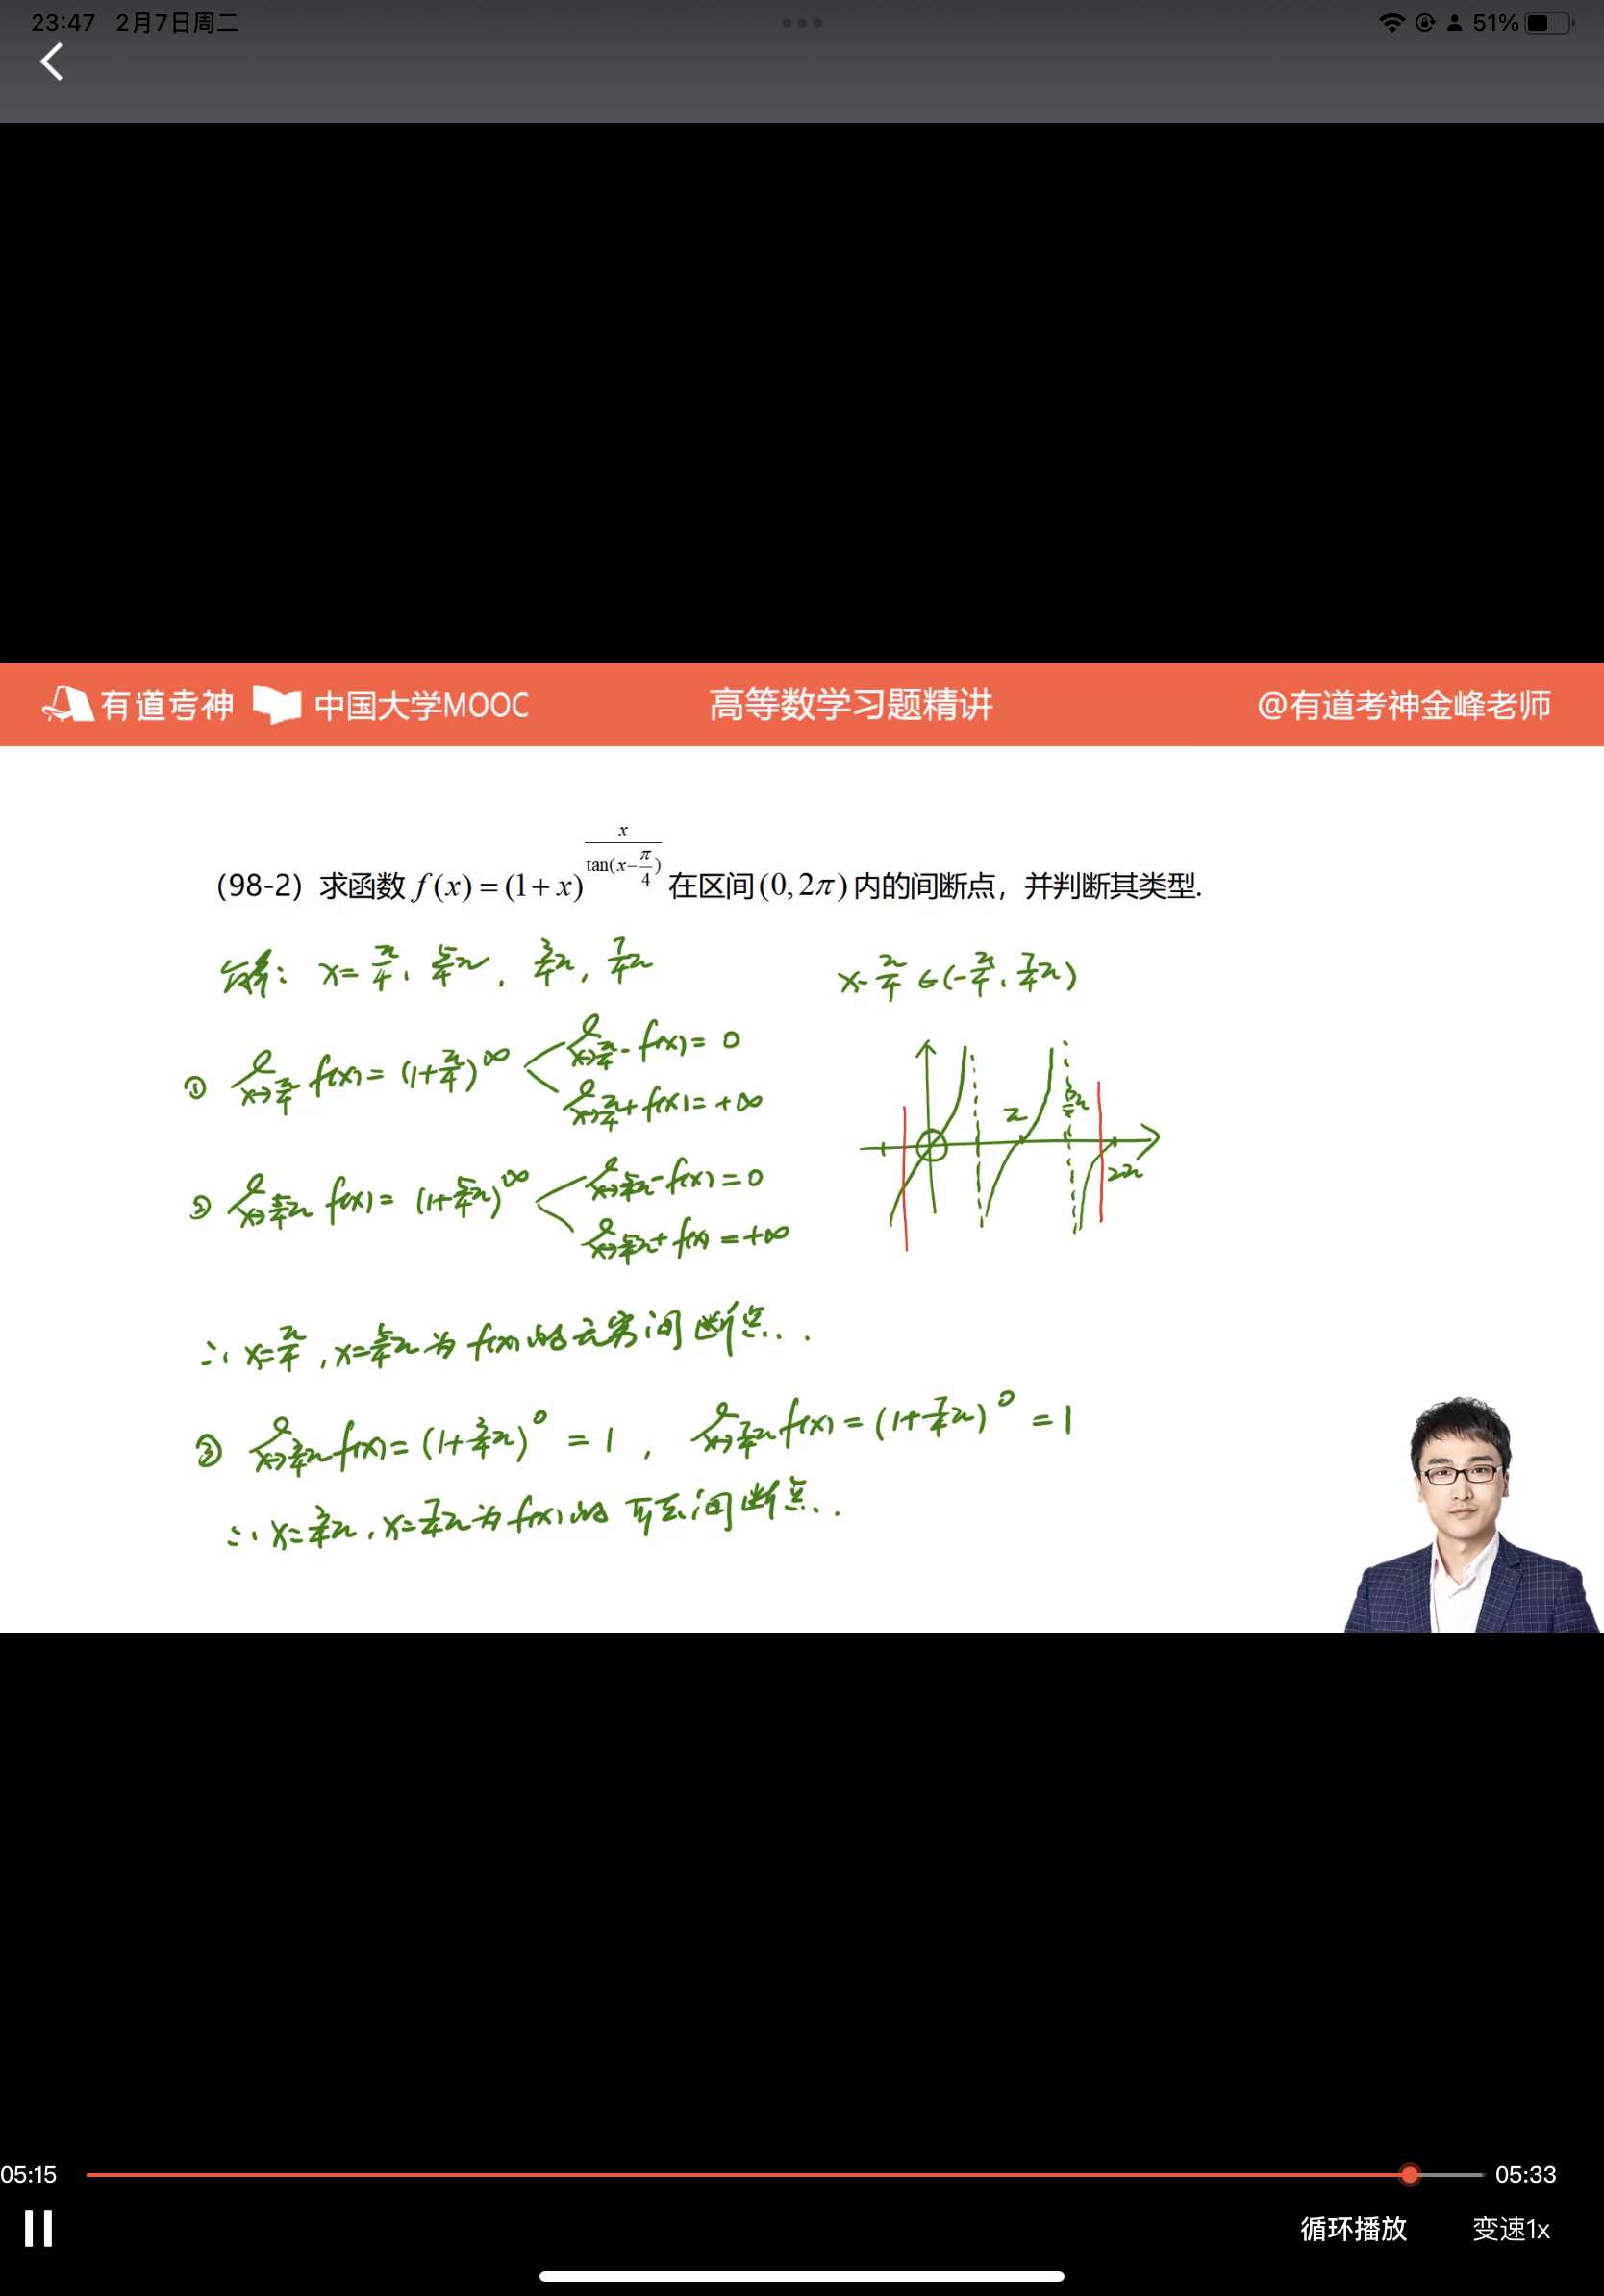 23:47 2月7日周二 51%
有道考神 中国大学MOOC 高等数学习题精讲 @有道考神金峰老师
(98-2) 求函数 f(x)=(1+x)^{x/tan(x-π/4)} 在区间(0,2π)内的间断点，并判断其类型.
x=π/4、5/4π、3/4π, 7/4π x-π/4∈(-π/4、7/4π)
① lim x→π/4 f(x)=(1+π/4)^∞ lim x→π/4- f(x)=0
lim x→π/4+ f(x)=+∞
π 3/2π 2π
② lim x→5/4π f(x)=(1+5/4π)^∞ lim x→5/4π- f(x)=0
lim x→5/4π+ f(x)=+∞
∴ x=π/4, x=5/4π为f(x)的无穷间断点.
③ lim x→3/4π f(x)=(1+3/4π)^0=1, lim x→7/4π f(x)=(1+7/4π)^0=1
∴ x=3/4π, x=7/4π为f(x)的可去间断点.
05:15 05:33
循环播放 变速1x